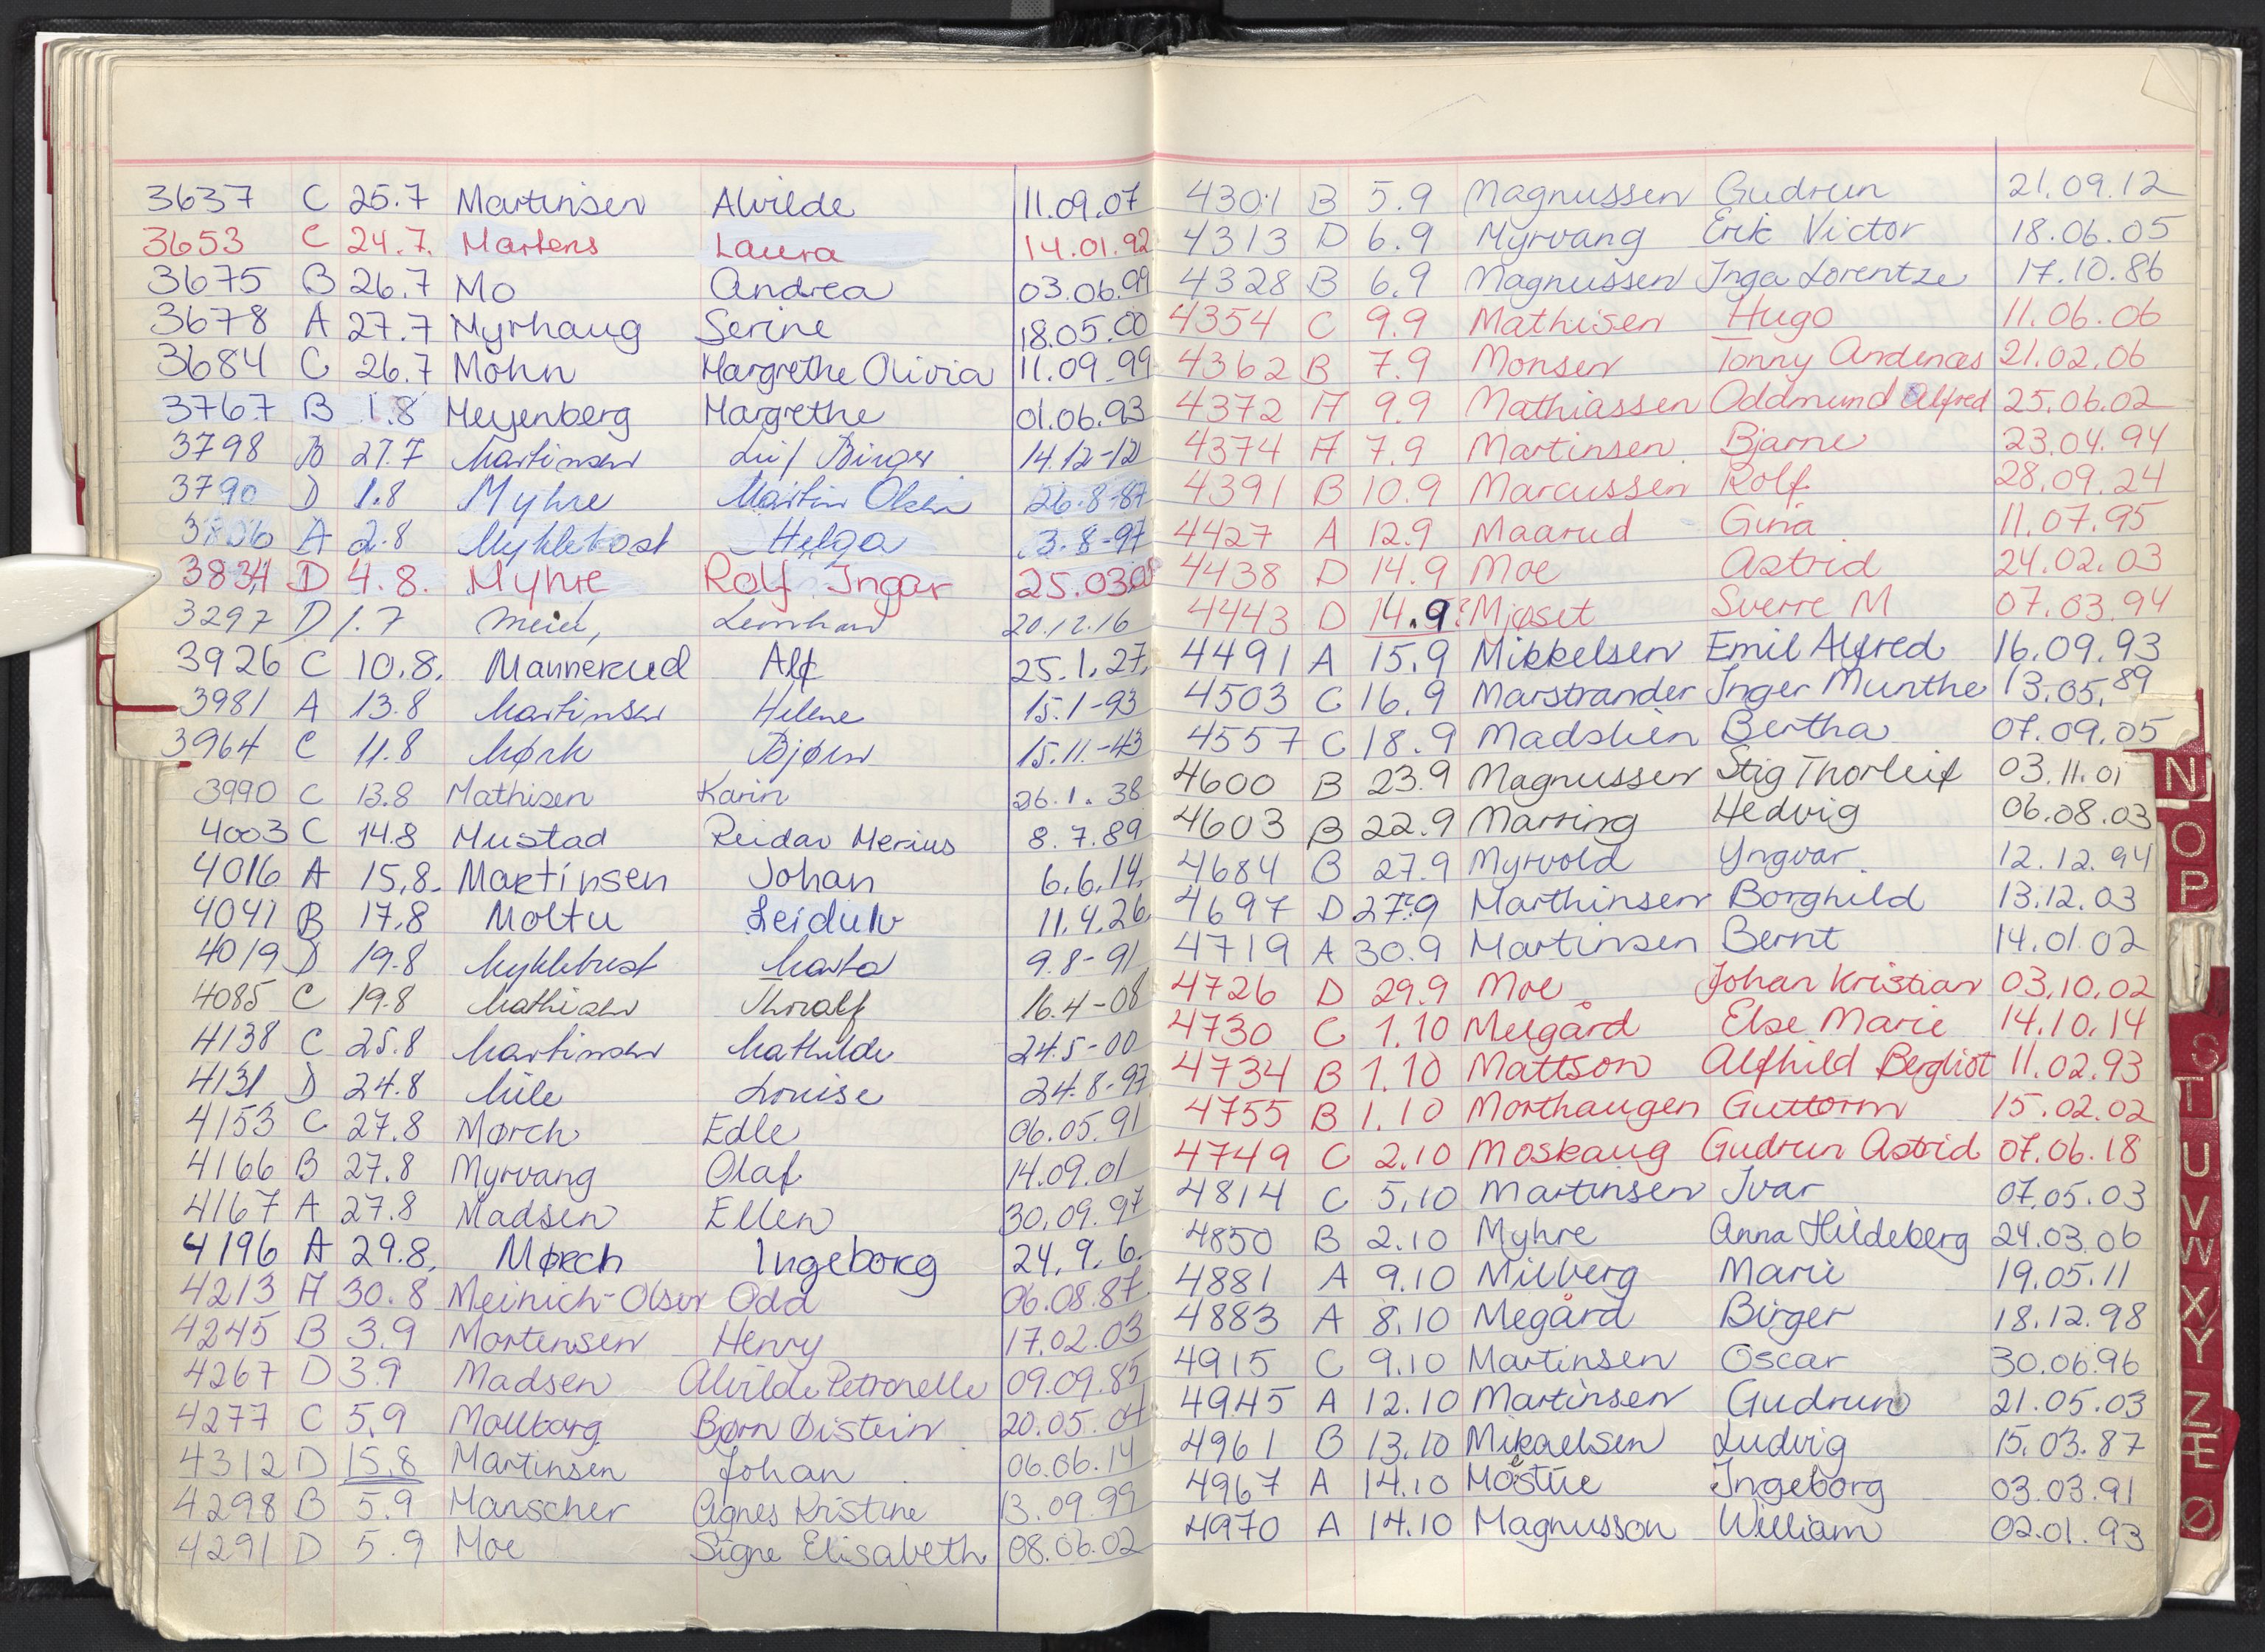 3637 C 25.7 Martinsen Alvilde 11.09.07
3653 C 24.7. Martens Laura 14.01.92
3675 B 26.7 Mo Andrea 03.06.99
3678 A 27.7 Myrhaug Serine 18.05.00
3684 C 26.7 Mohn Margrethe Olivia 11.09.99
3767 B 1.8 Meyenberg Margrethe 01.06.93
3798 B 27.7 Martinsen Leif Birger 14.12-12
3790 D 1.8 Myhre Martin Olsen 26.8-87
3806 A 2.8 Myklebost Helga 3.8-97
3834 D 4.8. Myhre Rolf Ingar 25.03.08
3297 D 1.7 Meier, Leonhard 20.12.16
3926 C 10.8. Mannerud Alf 25.1.27,
3981 A 13.8 Martinsen Helene 15.1-93
3964 C 11.8 Mørk Bjørn 15.11.-43
3990 C 13.8 Mathisen Karin 26.1.38
4003 C 14.8 Mustad Reidar Merius 8.7.89
4016 A 15,8. Martinsen Johan 6.6.14.
4041 B 17,8 Moltu Leidulv 11.4.26
4019 D 19.8 Myklebust Marta 9.8-91
4085 C 19.8 Mathisen Thoralf 16.4-08
4138 C 25.8 Martinsen Mathilde 24.5-00
4131 D 24.8 Mile Louise 24.8-97
4153 C 27.8 Mørch Edle 06.05.91
4166 B 27.8 Myrvang Olaf 14.09.01
4167 A 27.8 Madsen Ellen 30.09.97
4196 A 29.8. Mørch Ingeborg 24.9.6.
4213 A 30.8 Meinich-Olsen Odd 06.08.87
4245 B 3.9 Mortensen Henry 17.02.03
4267 D 3.9 Madsen Alvilde Petronelle 09.09.85
4277 C 5,9 Mallborg Bjørn Øistein 20.05.04
4312 D 15.8 Martinsen Johan 06.06.14
4298 B 5.9 Manscher Agnes Kristine 13.09.99
4291 D 5.9 Moe Signe Elisabeth 08.06.02
4301 B 5.9 Magnussen Gudrun 21.09.12
4313 D 6.9 Myrvang Erik Victor 18.06.05
4328 B 6.9 Magnussen Inga Lorentze 17.10.86
4354 C 9.9 Mathisen Hugo 11.06.06
4362 B 7.9 Monsen Tonny Andenæs 21.02.06
4372 A 9.9 Mathiassen Oddmund Alfred 25.06.02
4374 A 7.9 Martinsen Bjarne 23.04.94
4391 B 10.9 Marcussen Rolf 28.09.24
4427 A 12.9 Maarud Gina 11.07.95
4438 D 14.9 Moe Astrid 24.02.03
4443 D 14.9? Mjøset Sverre M 07.03.94
4491 A 15.9 Mikkelsen Emil Alfred 16.09.93
4503 C 16.9 Marstrander Inger Munthe 13.05.89
4557 C 18.9 Madslien Bertha 07.09.05
4600 B 23.9 Magnussen Stig Thorleif 03.11.01
4603 B 22.9 Marring Hedvig 06.08.03
4684 B 27.9 Myrvold Yngvar 12.12.94
4697 D 27.9 Marthinsen Borghild 13.12.03
4719 A 30.9 Martinsen Bernt 14.01.02
4726 D 29.9 Moe Johan Kristian 03.10.02
4730 C 1.10 Melgård Else Marie 14.10.14
4734 B 1.10 Mattson Alfhild Bergliot 11.02.93
4755 B 1.10 Morthaugen Guttorm 15.02.02
4749 C 2.10 Moskaug Gudrun Astrid 07.06.18
4814 C 5,10 Martinsen Ivar 07.05.03
4850 B 2.10 Myhre Anna Hildeberg 24.03.06
4881 A 9.10 Milberg Marie 19.05.11
4883 A 8.10 Megård Birger 18.12.98
4915 C 9.10 Martinsen Oscar 30.06.96
4945 A 12.10 Martinsen Gudrun 21.05.03
4961 B 13.10 Mikaelsen Ludvig 15.03.87
4967 A 14.10 Mostue Ingeborg 03.03.91
4970 A 14.10 Magnusson William 02.01.93
N
O
P
S
T
U
V
W
X
Y
Z
Æ
Ø